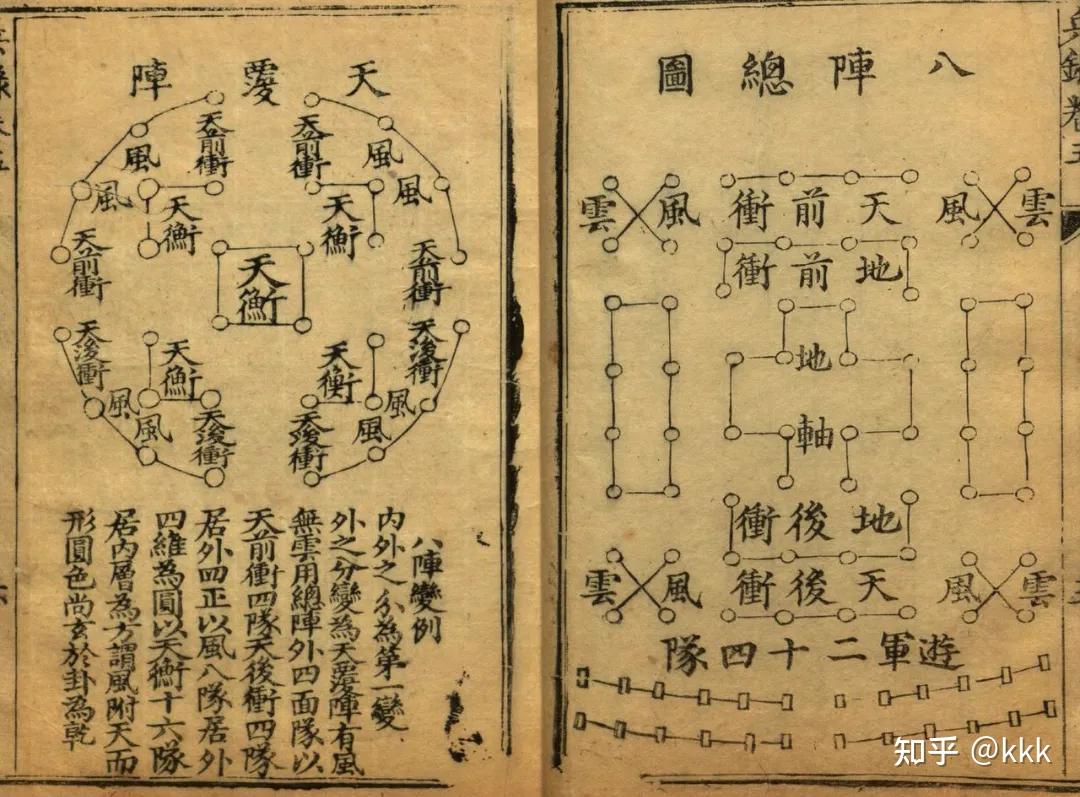 兵錄卷五
八陣總圖
雲風
天前衝
風雲
地前衝
地
軸
地後衝
雲風
天後衝
風雲
遊軍二十四隊
天覆陣
天前衝
天前衝
風
風
風
風
天衡
天衡
天前衝
天前衝
天衡
天後衝
天後衝
天衡
天衡
風
風
風
風
天後衝
天後衝
八陣變例
內外之分為第一變
外之分變為天覆陣有風
無雲用總陣外四面隊以
天前衝四隊天後衝四隊
居外四正以風八隊居外
四維為圓以天衡十六隊
居內層為方謂風附天而
形圓色尚玄於卦為乾
知乎 @kkk